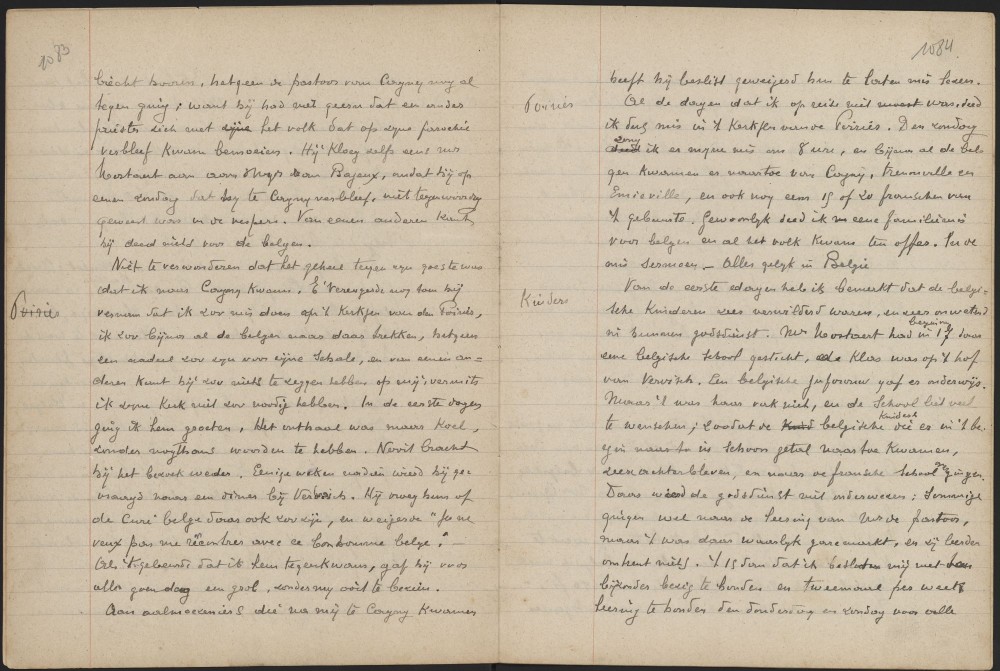 1083
bracht hooren, hetgeen de pastoor van Cagny nog al
tegen ging; want hij had niet geern dat een ander
priester zich met zijne het volk dat op zijne parochie
verbleef kwam bemoeien. Hij kloeg zelfs eens
aan Mgr van Bayeux, omdat hij op
eenen zondag dat hij te Cagny verbleef, niet tegenwoordig
geweest was in de vespers. Van eenen anderen kant,
hij deed niets voor de belgen.
Niet te verwonderen dat het geheel tegen zijn goeste was
dat ik naar Cagny kwam. Verergerde nog toen hij
Poiriés
vernam dat ik zou mis doen op 't Kerkjen van den Poiriés,
ik zou bijna al de belgen naar daar trekken, hetgeen
een nadeel zou zijn voor zijne schale, en van eenen an=
deren kant hij zou niets te zeggen hebben op mij, vermits
ik zijne Kerk niet zou noodig hebben. In de eerste dagen
ging ik hem groeten, het onthaal was maar koel,
zonder nogthans woorden te hebben. Nooit bracht
hij het bezoek weder. Eenige weken nadien wierd hij ge=
vraagd naar een diner bij Verbrich. Hij vroeg hem of
de Curé belge daar ook zou zijn, en weigerde "Je ne
veux pas me rencontrer avec ce bonhomme belge." —
Als 't gebeurde dat ik hem tegenkwam, gaf hij voor
alle goen dag een grol, zonder mij ooit te bezien.
Aan aalmoezeniers die na mij te Cagny kwamen
1084
heeft hij beslist geweigerd hun te laten mis lezen.
Poiriés
Al de dagen dat ik op reize niet moest was, deed
ik dus mis in 't Kerkjen van de Poiriés. Den zondag
zong
deed ik er mijne mis om 8 ure, en bijna al de bel
gen kwamen er naartoe van Cagny, Frenouville en
Emieville, en ook nog eene 15 of 20 franschen van
't gebuurte. Gewoonlijk deed ik er eene familiemis
voor belgen en al het volk kwam ten offer. In de
mis sermoen. — Alles gelijk in België
Kinders
Van de eerste dagen heb ik bemerkt dat de belgi=
sche Kinderen zeer verwilderd waren, en zeer onwetend
in hunnen godsdienst. Mr had in begin 17 daar
eene belgische school gesticht, de Klas was op 't hof
van Verwisch. Een belgische Juffrouw gaf er onderwijs.
Maar 't was haar vak niet, en de School liet veel
te wenschen; zoodat de Kind belgische kinders die er in 't be
gin naartoe in schoon getal naartoe kwamen,
zeer achterbleven, en naar de fransche School gingen.
Daar wierd de godsdienst niet onderwezen; Sommige
gingen wel naar de leesing van Mr de pastoor,
maar 't was daar waarlijk gare markt, en zij leerden
omtrent niets. 't Is dan dat ik besloten mij met hen
bijzonder bezig te houden en tweemaal per week
leesing te houden den donderdag en zondag voor alle